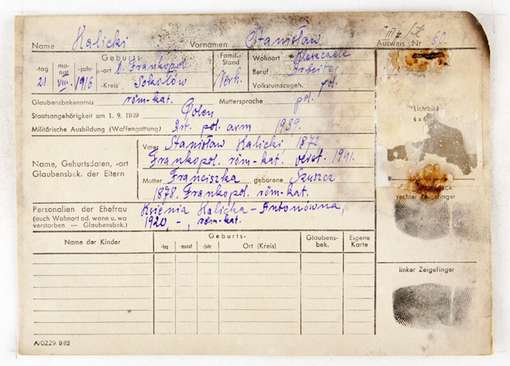 Name Kalicki Vornamen Stanisław Ausweis Nr
Geburts- Famil. Stand Wohnort
-tag -monat -jahr -ort Frankopol Beruf
21 VIII. 1916 -Kreis Sokołów Verh. Volkstumzugeh. pol.
Glaubensbekenntnis röm-kat. Muttersprache pol.
Staatsangehörigkeit am 1. 9. 1939 Polen
Militärische Ausbildung (Waffengattung) pol. arm 1939.
Lichtbild
Name, Geburtsdaten, -ort Glaubensbek. der Eltern
Vater Stanisław Kalicki 187
Frankopol. röm-kat. 1941.
Mutter Franciszka geborene Szuszcz
1878. Frankopol röm-kat.
rechter Zeigefinger
Personalien der Ehefrau
(auch Wohnort od. wann u. wo
verstorben — Glaubensbek.)
Ksienia Kalicka - Antonówna,
1920 -, röm-kat.
Name der Kinder Geburts- Glaubens-bek. Eigene Karte
-tag -monat -jahr Ort (Kreis)
linker Zeigefinger
A/0229 B82